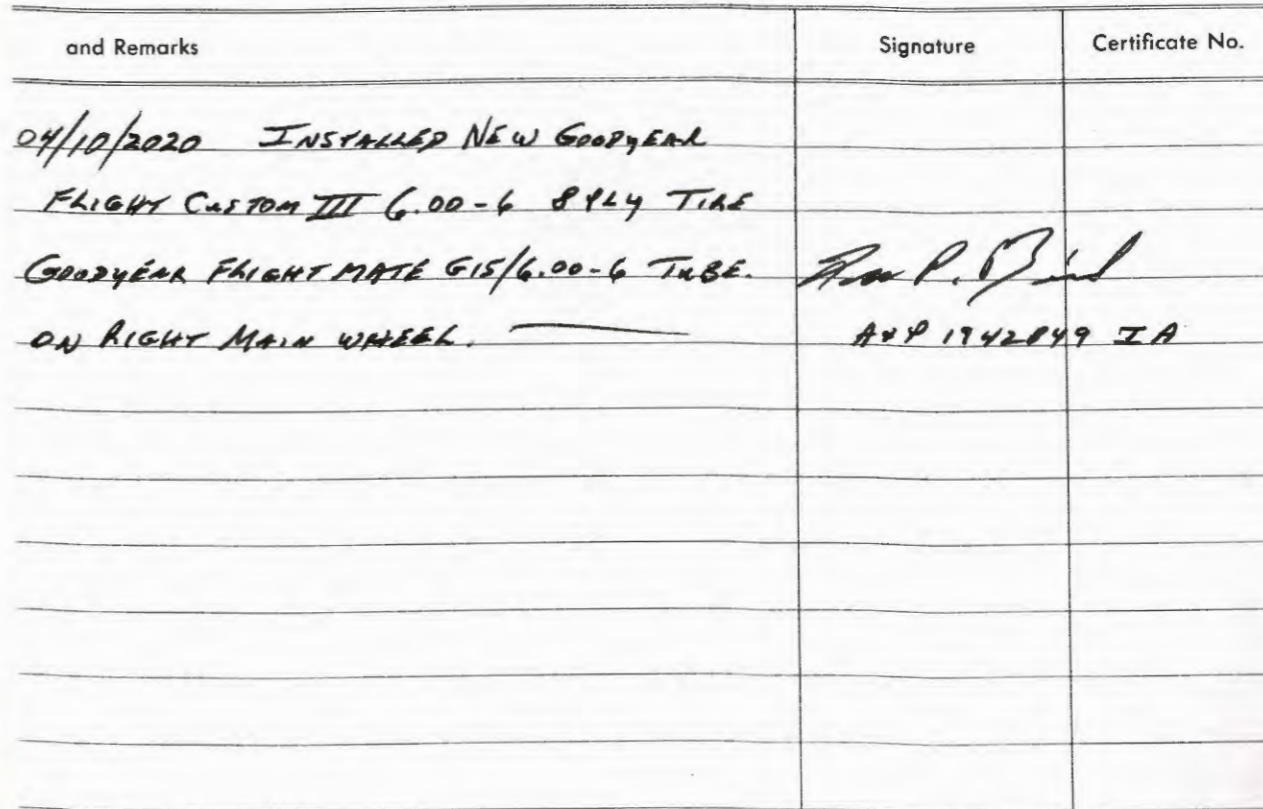 and Remarks Signature Certificate No.
04/10/2020 INSTALLED NEW GOODYEAR
FLIGHT CUSTOM III 6.00-6 8 PLY TIRE
GOODYEAR FLIGHT MATE G15/6.00-6 TUBE.
ON RIGHT MAIN WHEEL.
A+P 1942849 IA